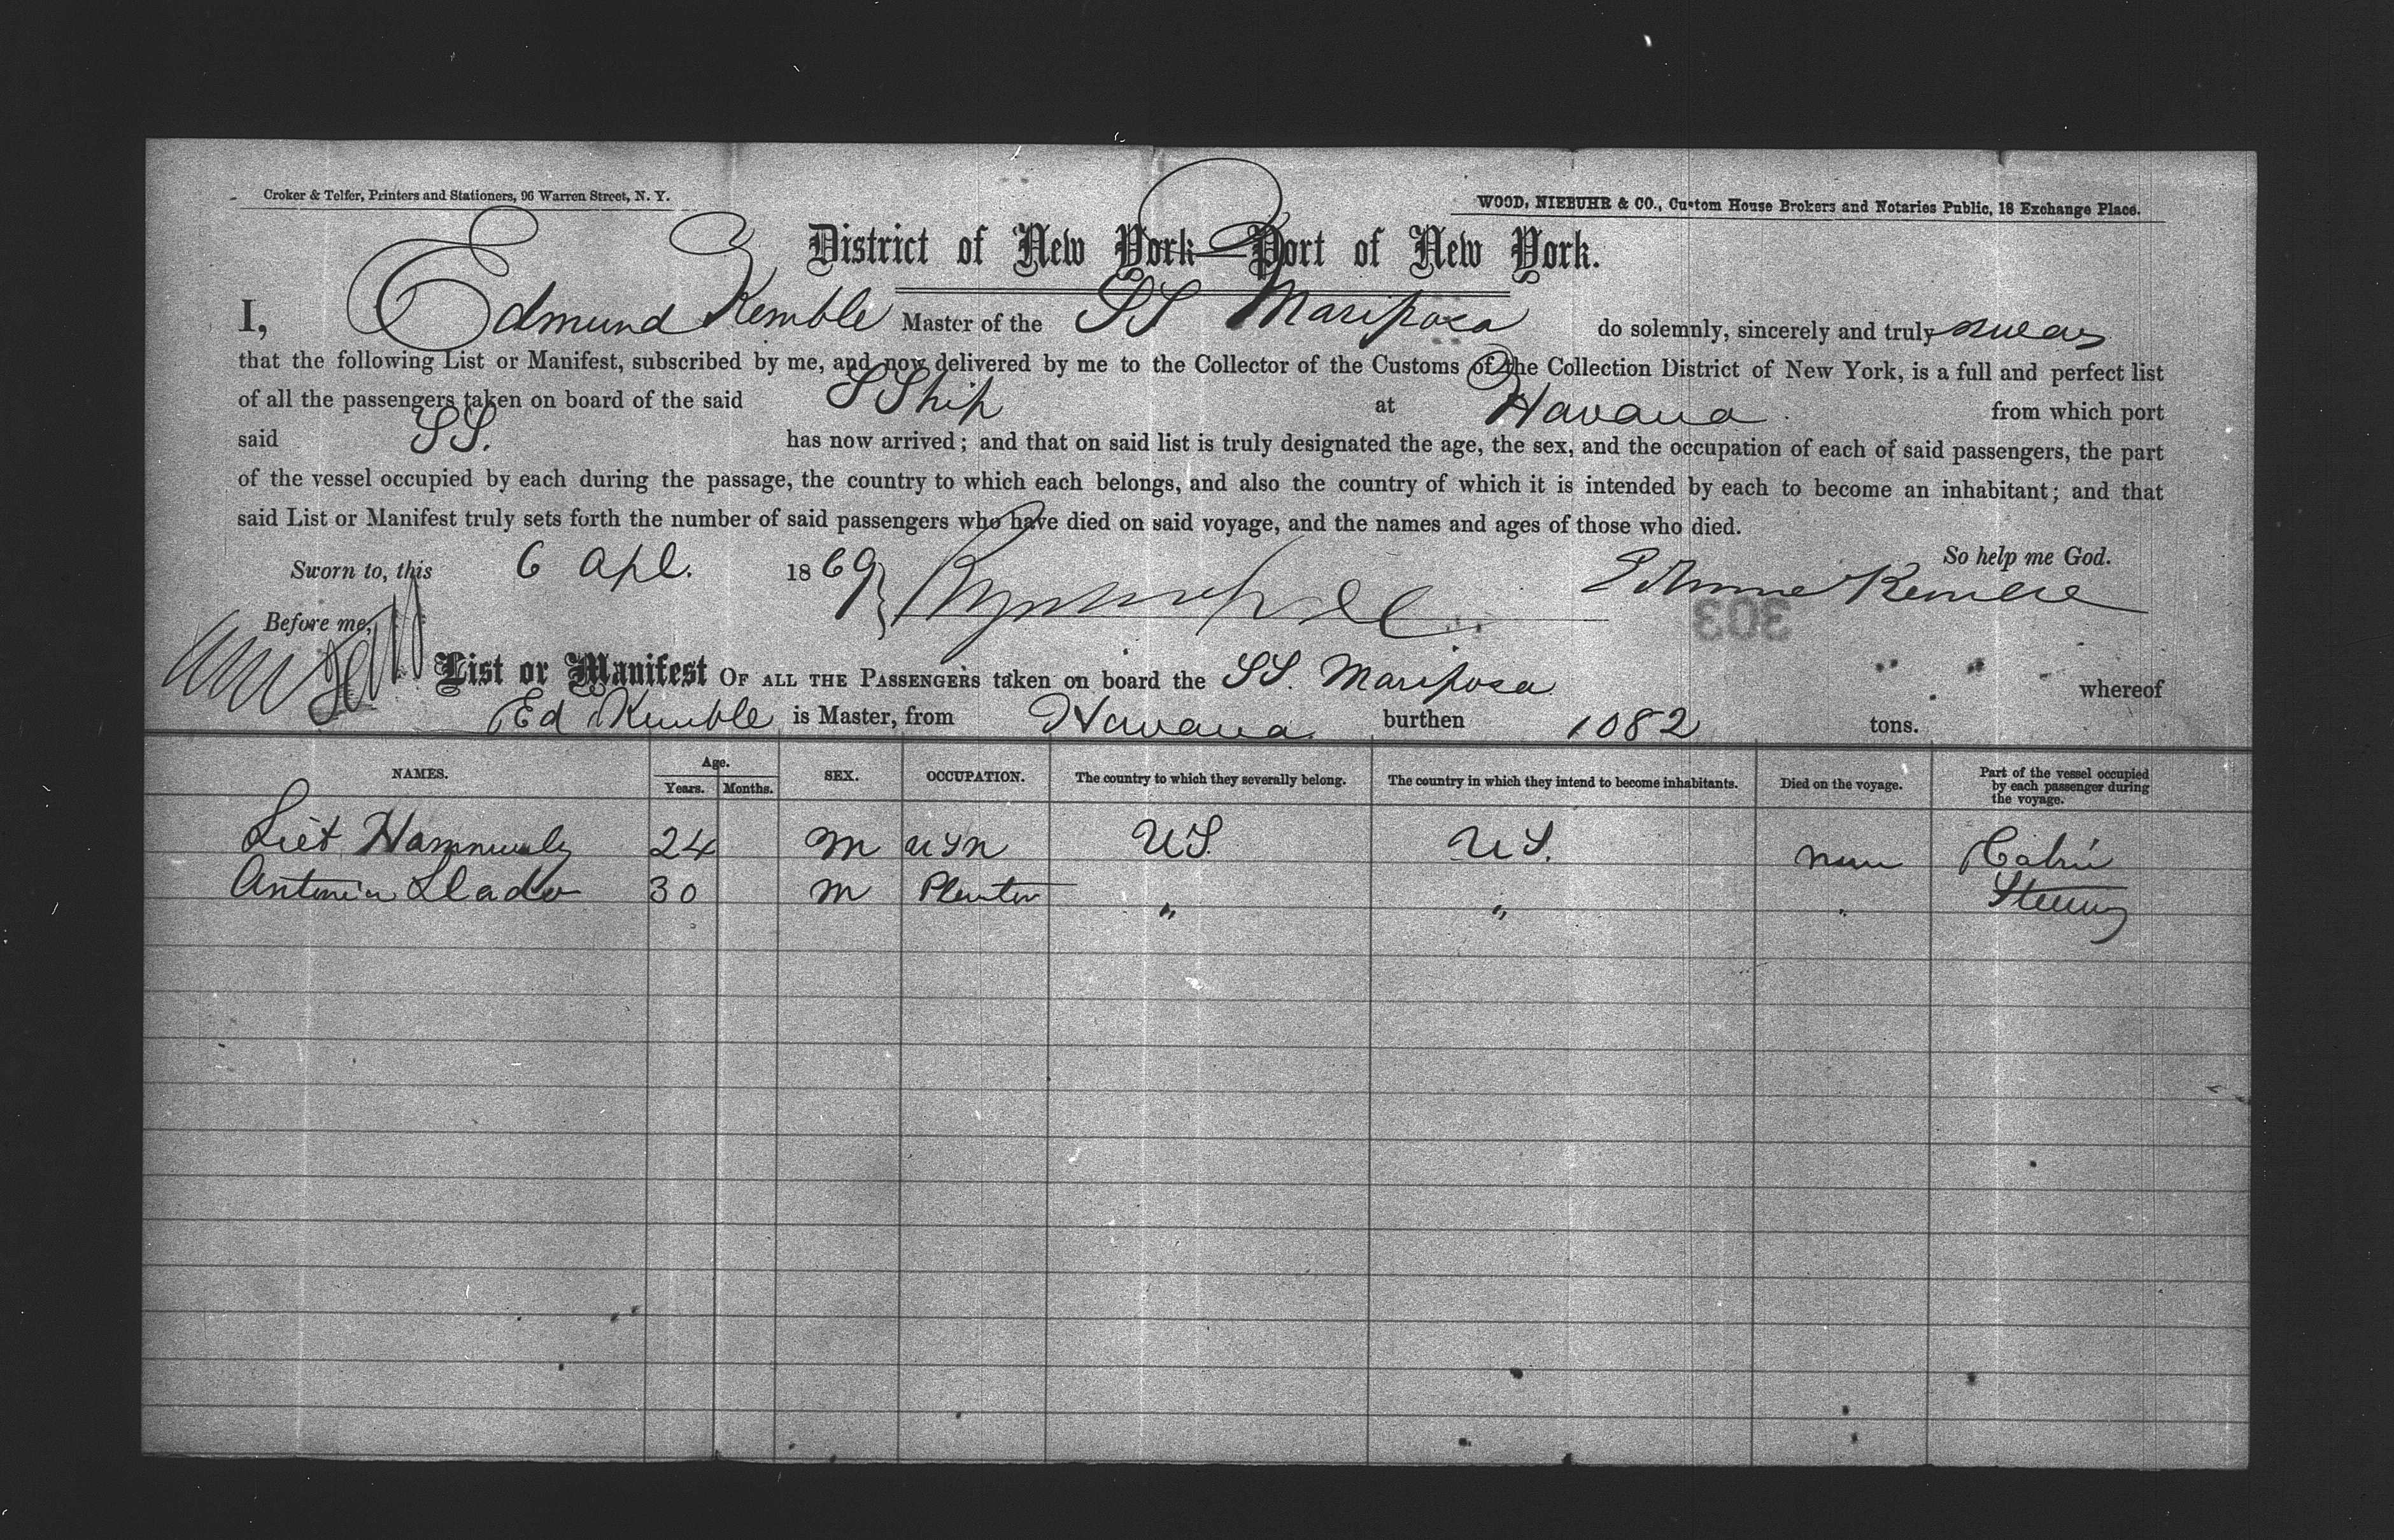 Croker & Telfer, Printers and Stationers, 96 Warren Street, N. Y.
WOOD, NIEBUHR & CO., Custom House Brokers and Notaries Public, 18 Exchange Place.
District of New York—Port of New York.
I, Edmund Kemble Master of the SS Mariposa do solemnly, sincerely and truly swear
that the following List or Manifest, subscribed by me, and now delivered by me to the Collector of the Customs of the Collection District of New York, is a full and perfect list
of all the passengers taken on board of the said SShip at Havana from which port
said SS. has now arrived; and that on said list is truly designated the age, the sex, and the occupation of each of said passengers, the part
of the vessel occupied by each during the passage, the country to which each belongs, and also the country of which it is intended by each to become an inhabitant; and that
said List or Manifest truly sets forth the number of said passengers who have died on said voyage, and the names and ages of those who died.
So help me God.
Sworn to, this 6 Apl. 1869
Kemble
303
Before me,
List or Manifest OF ALL THE PASSENGERS taken on board the SS. Mariposa whereof
Ed Kemble is Master, from Havana burthen 1082 tons.
NAMES. Age. Years. Months. SEX. OCCUPATION. The country to which they severally belong. The country in which they intend to become inhabitants. Died on the voyage. Part of the vessel occupied by each passenger during the voyage.
Liet 24 M USN US. US. Cabin
Llado 30 M Planter " " "